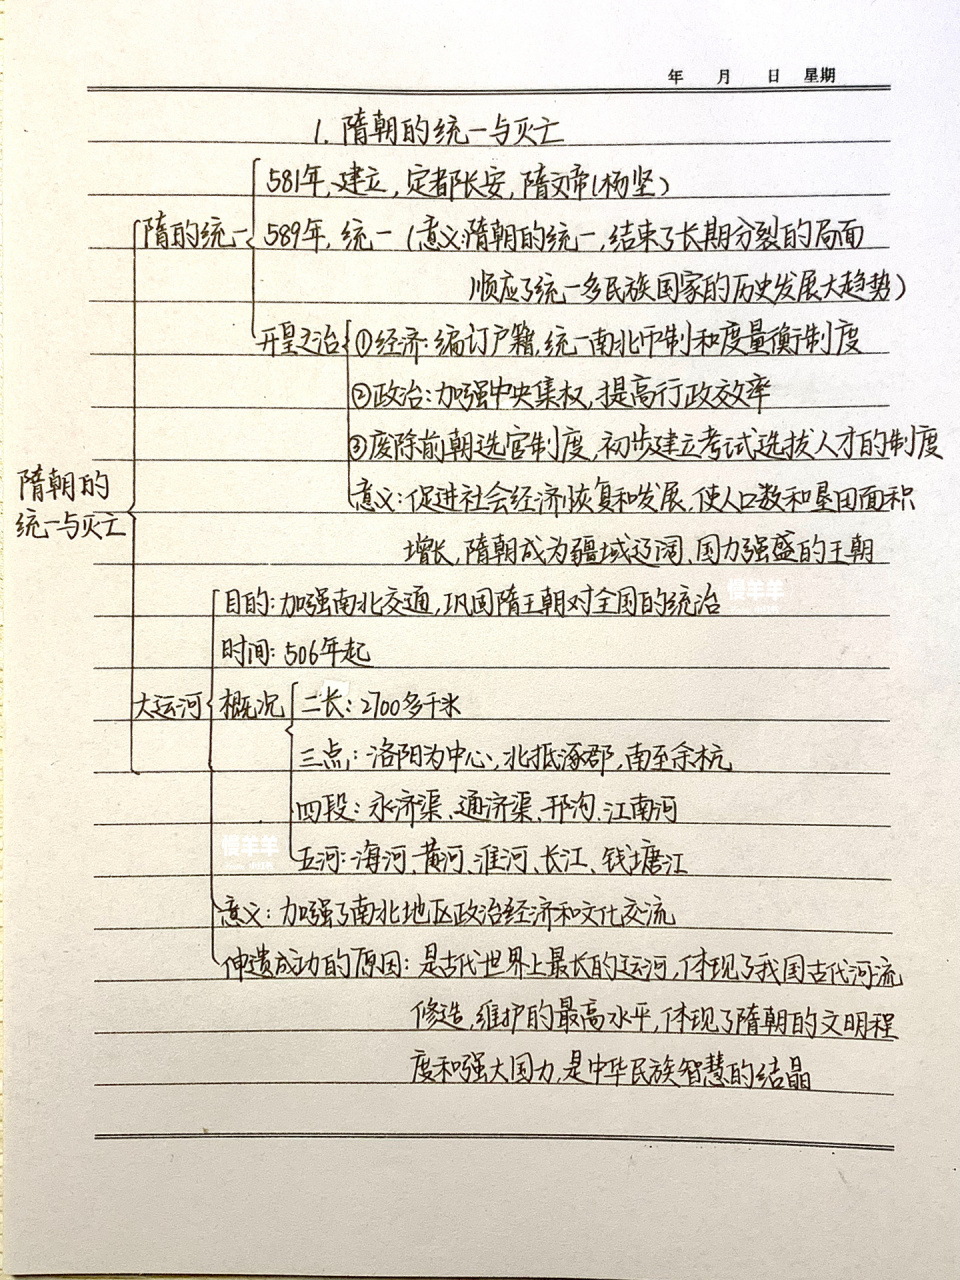 年 月 日 星期
1. 隋朝的统一与灭亡
581年,建立,定都长安,隋文帝(杨坚)
隋的统一
589年,统一(意义:隋朝的统一,结束了长期分裂的局面
顺应了统一多民族国家的历史发展大趋势)
开皇之治
①经济:编订户籍,统一南北币制和度量衡制度
②政治:加强中央集权,提高行政效率
③废除前朝选官制度,初步建立考试选拔人才的制度
隋朝的
统一与灭亡
意义:促进社会经济恢复和发展,使人口数和垦田面积
增长,隋朝成为疆域辽阔、国力强盛的王朝
目的:加强南北交通,巩固隋王朝对全国的统治
慢羊羊
时间:506年起
大运河
概况
二长:2700多千米
三点:洛阳为中心,北抵涿郡,南至余杭
四段:永济渠、通济渠、邗沟、江南河
慢羊羊
五河:海河、黄河、淮河、长江、钱塘江
意义:加强了南北地区政治经济和文化交流
申遗成功的原因:是古代世界上最长的运河,体现了我国古代河流
修造,维护的最高水平,体现了隋朝的文明程
度和强大国力,是中华民族智慧的结晶